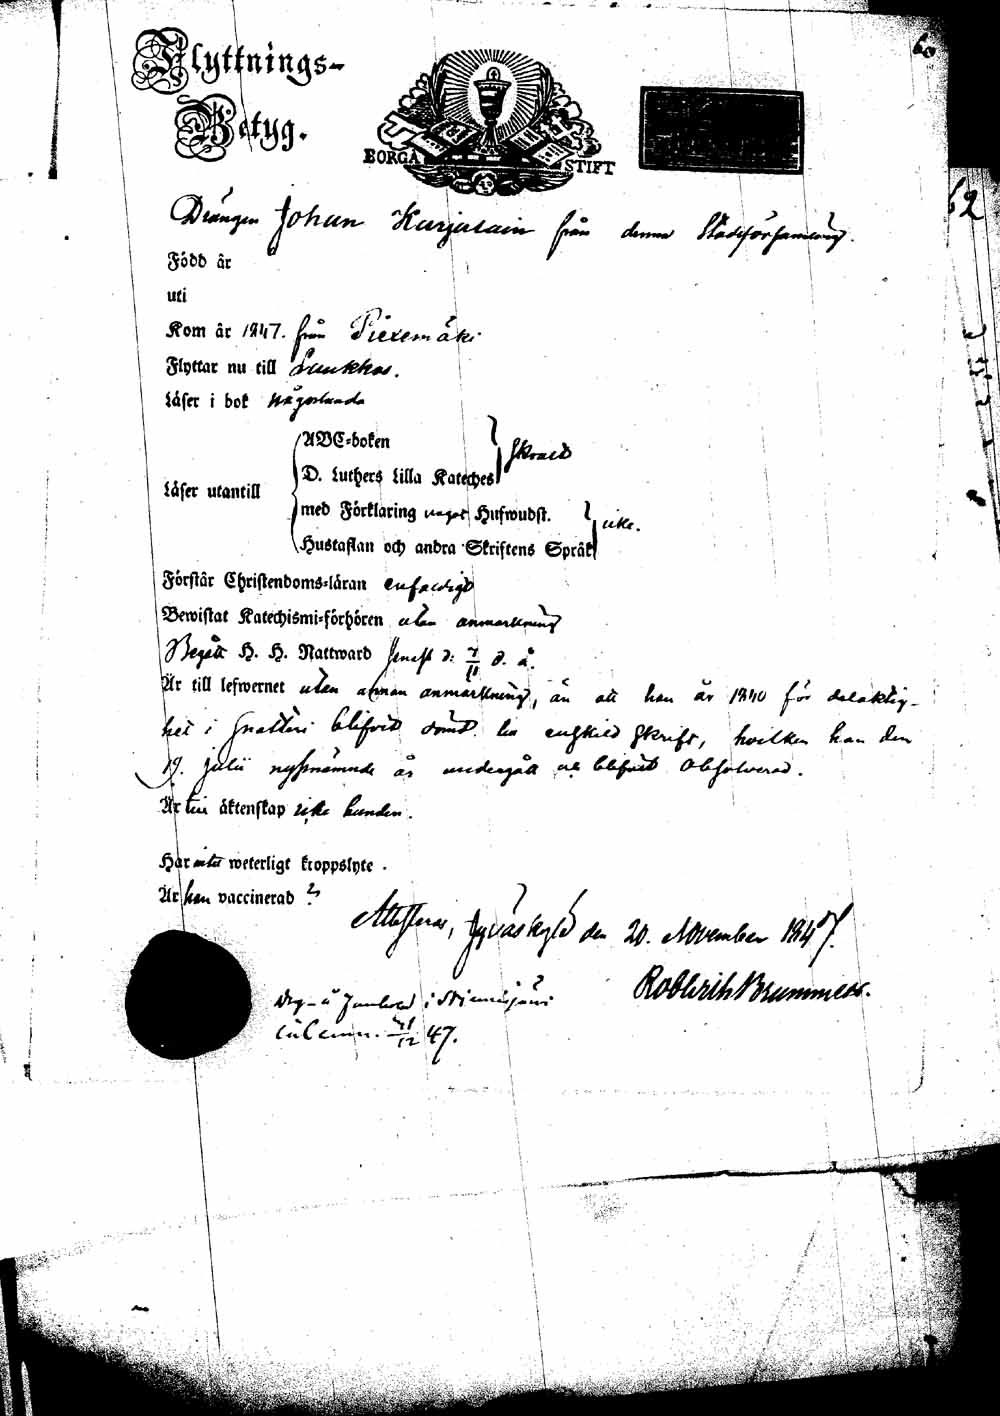 60
Flyttnings-
Betyg.
BORGÅ STIFT
62
Drängen Johan Kurjalain från denna Stadsförsamling.
Född år
uti
Kom år 1847. från Piexemäki
Flyttar nu till Laukkas.
Läser i bok någorlunda
ABC-boken
D. Luthers Lilla Kateches
Läser utantill
med Förklaring något Hufwudst.
Hustaflan och andra Skriftens Språk
icke.
Förstår Christendoms-läran enfaldigt
Bewistat Katechismi-förhören utan anmärkning
Begått H. H. Nattward senast d: d. å.
Är till lefwernet utan annan anmärkning, än att han år 1840 för delaktig-
het i snatteri blifvit dömd till enskild skrift, hvilken han den
19. Julii nyssnämnde år undergått och blifvit absolverad.
Är till äktenskap icke bunden.
Har intet weterligt kroppslyte.
Är han vaccinerad ?
Attesteras, Jyväskylä den 20. November 1847.
Robberth Brummer.
47.